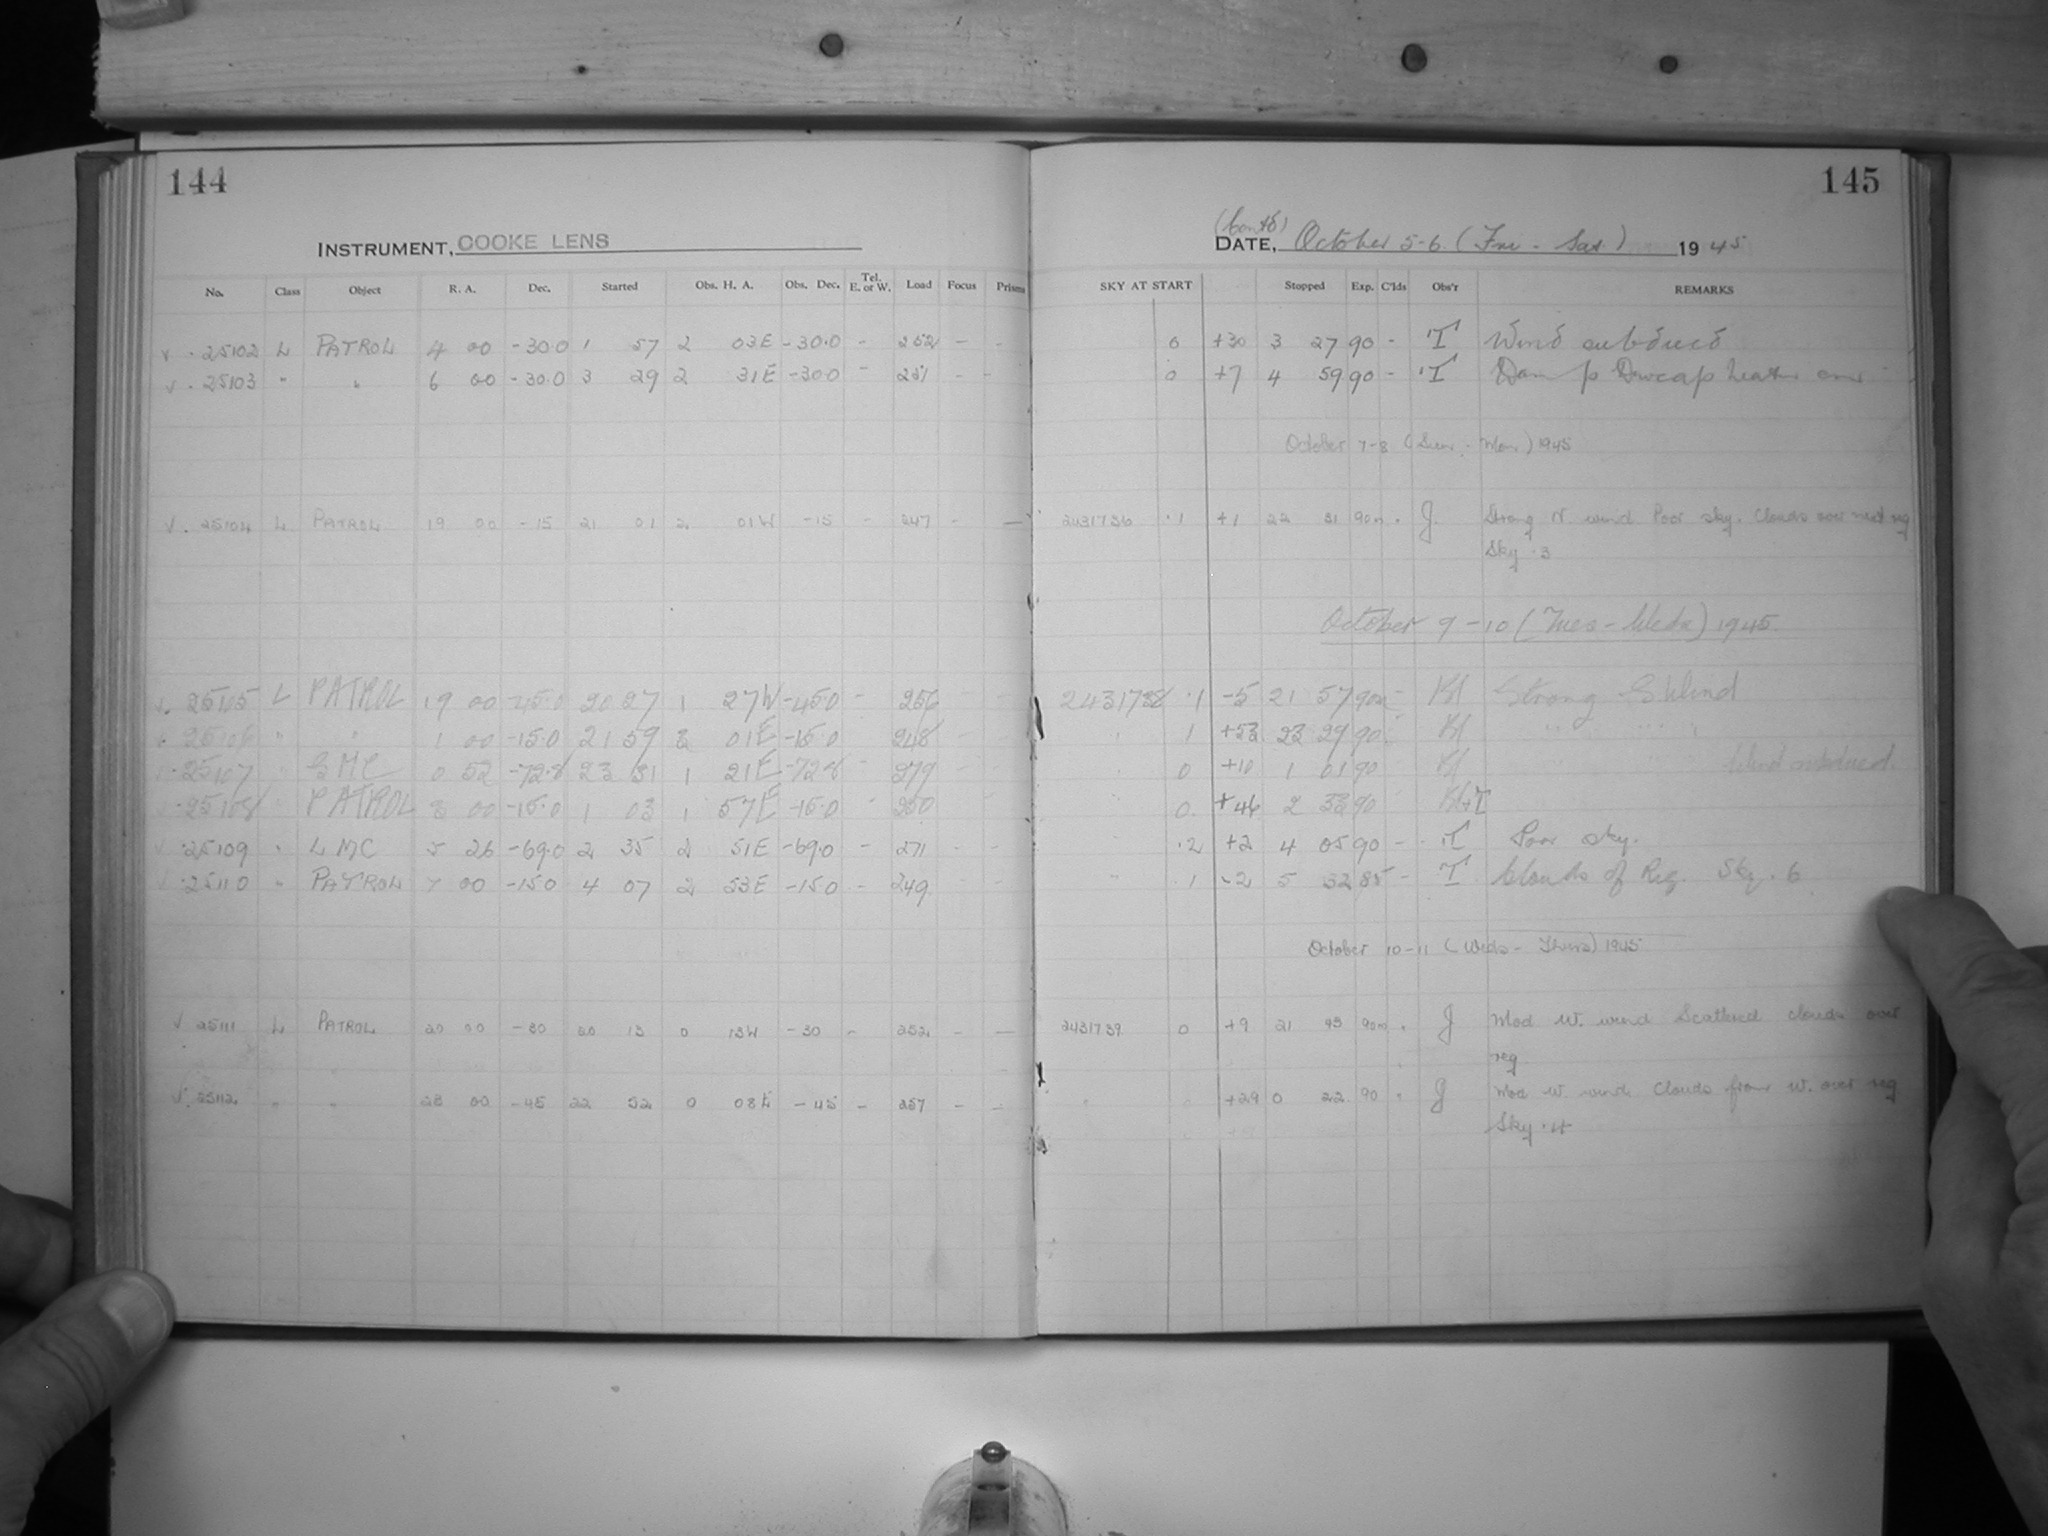 144
145
INSTRUMENT, COOKE LENS
(Contd)
DATE, October 5-6 (Fri - Sat) 1945
No. Class Object R. A. Dec. Started Obs. H. A. Obs. Dec. Tel. E. or W. Load Focus Prisms SKY AT START Stopped Exp. C'lds Obs'r REMARKS
v · 25102 L PATROL 4 00 -30.0 1 57 2 03E -30.0 - 252 - - 0 +30 3 27 90 - T Wind subdued
v · 25103 " " 6 00 -30.0 3 29 2 31E -30.0 - 251 - - 0 +7 4 59 90 - T Damp Dewcap heater on
October 7-8 (Sun - Mon) 1945
v · 25104 L PATROL 19 00 -15 21 01 2 01W -15 - 247 - - 2431736 .1 +1 22 31 90m . J Strong N. wind Poor sky. Clouds over next reg
Sky .3
October 9-10 (Tues - Weds) 1945
v. 25105 L PATROL 19 00 -45.0 20 27 1 27W -45.0 - 256 - - 2431738 .1 -5 21 57 90m - Kl Strong S Wind
25106 " " 1 00 -15.0 21 59 3 01E -15.0 - 248 - - " 1 +53 23 29 90 - Kl " "
· 25107 " SMC 0 52 -72.8 23 31 1 21E -72.8 - 279 - - " 0 +10 1 01 90 Kl " " Wind subdued.
· 25108 " PATROL 3 00 -15.0 1 03 1 57E -15.0 - 250 - - " 0 +46 2 33 90 Kl+T
v · 25109 " LMC 5 26 -69.0 2 35 2 51E -69.0 - 271 - - .2 +2 4 05 90 - T Poor sky.
v · 25110 " PATROL 7 00 -15.0 4 07 2 53E -15.0 - 249 - - " .1 -2 5 32 85 - T Clouds of Reg. Sky .6
October 10-11 (Weds - Thurs) 1945
v 25111 L PATROL 20 00 -30 20 13 0 13W -30 - 252 - - 2431739 0 +9 21 43 90m . J Mod W. wind Scattered clouds over
reg
v. 25112 " " 23 00 -45 22 52 0 08E -45 - 257 - - " 0 +29 0 22 90 " J Mod W. wind. Clouds from W. over reg
Sky .4